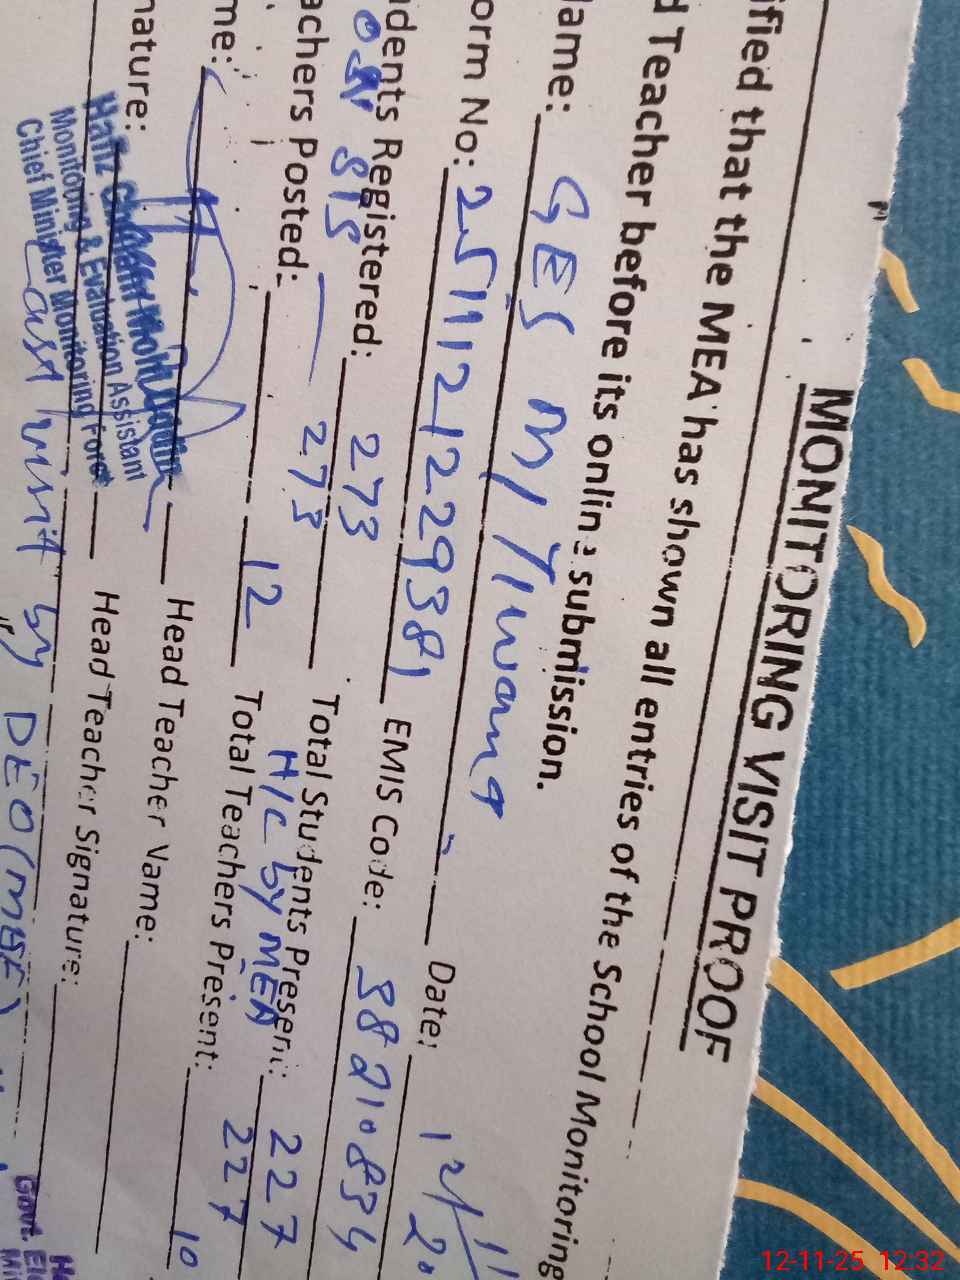 MONITORING VISIT PROOF
ified that the MEA has shown all entries of the School Monitoring
d Teacher before its online submission.
Name: GES M/
Date: 12/11
orm No: 251112122938 EMIS Code: 38210834
dents Registered: 273 Total Students Present: 227
273 H/C by MEA 227
achers Posted: 12 Total Teachers Present: 10
me: Head Teacher Name:
nature: Head Teacher Signature:
Hafiz
Monitoring & Evaluation Assistant
Chief Minister Monitoring Force
Last visit by DEO (MEE)
Govt. El
12-11-25 12:32